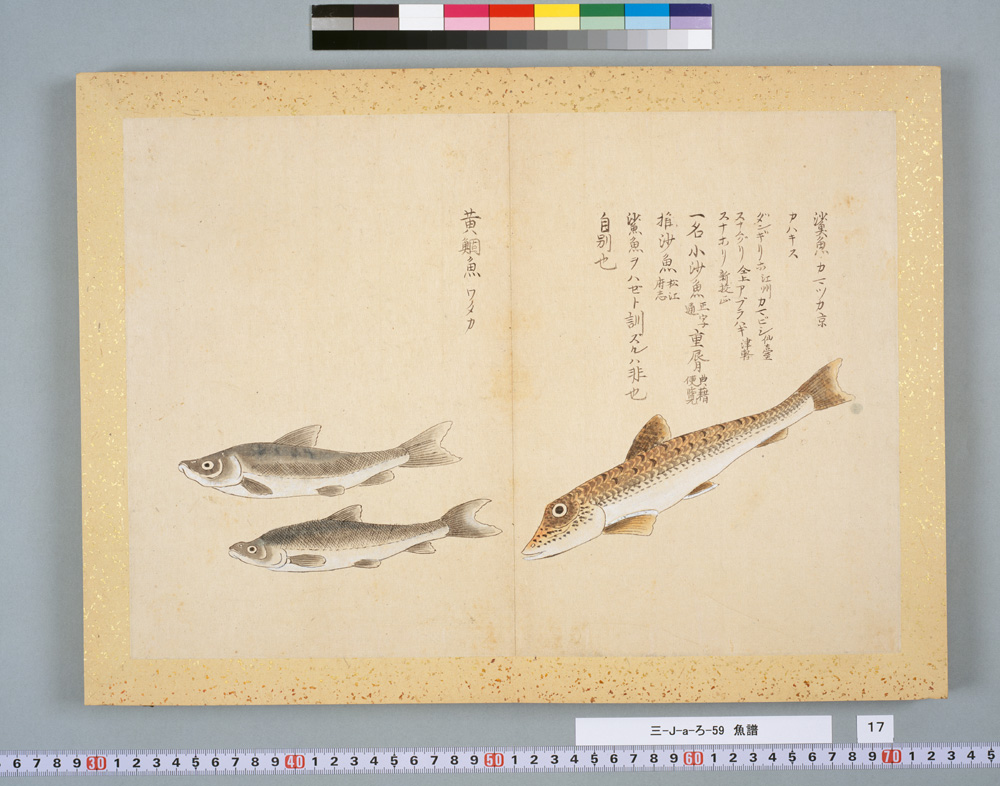 鯊魚 カマツカ 京
カハキス
ダンギリホ 江州 カマビシ 仙臺
スナクグリ 仝上 アブラハヤ 津軽
スナホリ
一名小沙魚 正字通 重唇 典籍便覽
推沙魚 松江府志
鯊魚ヲハゼト訓ズルハ非也
自別也
黄鯝魚 ワタカ
三-J-a-ろ-59 魚譜
17
6 7 8 9 30 1 2 3 4 5 6 7 8 9 40 1 2 3 4 5 6 7 8 9 50 1 2 3 4 5 6 7 8 9 60 1 2 3 4 5 6 7 8 9 70 1 2 3 4 5